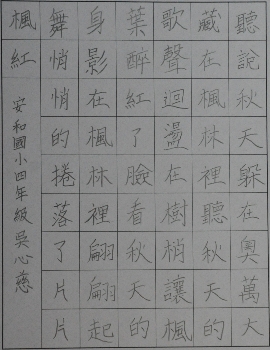 聽說秋天躲在奧萬大
藏在楓林裡聽秋天的
歌聲迴盪在樹梢讓楓
葉醉紅了臉看秋天的
身影在楓林裡翩翩起
舞悄悄的捲落了片片
楓紅 安和國小四年級 吳心慈